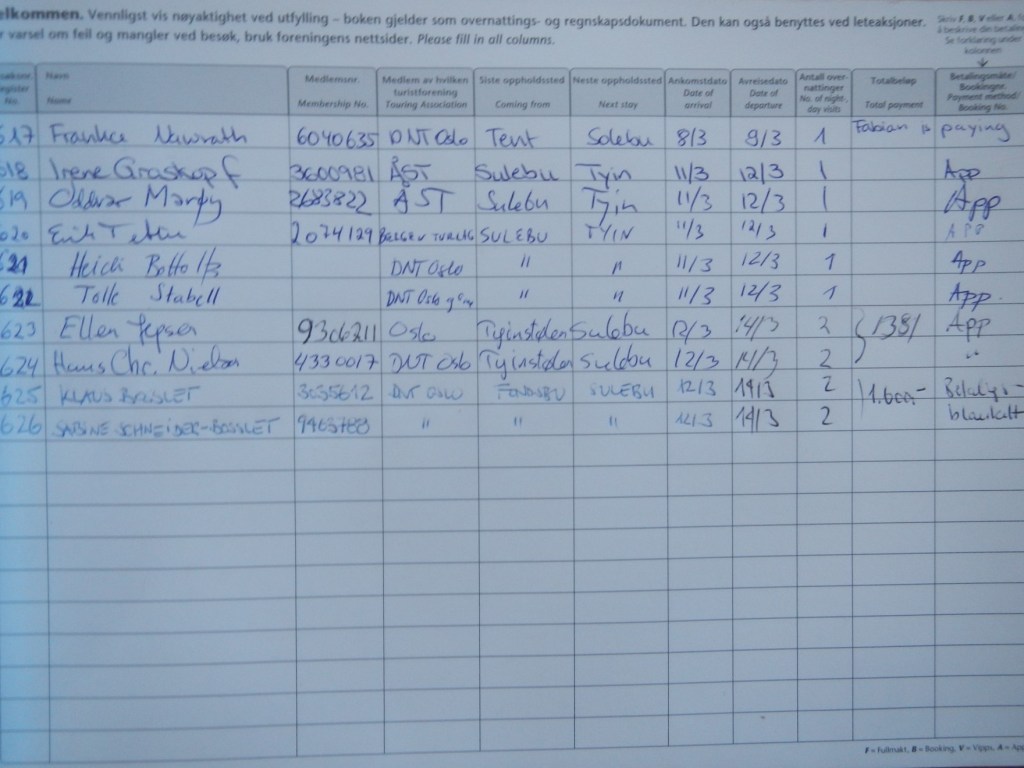 elkommen. Vennligst vis nøyaktighet ved utfylling – boken gjelder som overnattings- og regnskapsdokument. Den kan også benyttes ved leteaksjoner.
r varsel om feil og mangler ved besøk, bruk foreningens nettsider. Please fill in all columns.
Skriv F, B, V eller A, f
å beskrive din betalin
Se forklaring under
kolonnen
Navn Medlemsnr. Medlem av hvilken turistforening Siste oppholdssted Neste oppholdssted Ankomstdato Avreisedato Antall over-nattinger Totalbeløp Betalingsmåte/ Bookingnr.
No. Name Membership No. Touring Association Coming from Next stay Date of arrival Date of departure No. of night-day visits Total payment Payment method/ Booking No.
617 6040635 DNT Oslo Tent Solebu 8/3 9/3 1 Fabian is paying
618 Irene Graskopf 3600981 ÅST Sulebu Tyin 11/3 12/3 1 App
619 Oddvar 2683822 ÅST Sulebu Tyin 11/3 12/3 1 App
620 2074129 SULEBU TYIN 11/3 12/3 1 APP
621 Heidi DNT Oslo " " 11/3 12/3 1 App
622 Stabell DNT Oslo " " 11/3 12/3 1 App
623 Ellen Jepsen 9306211 Oslo Tyinstølen Sulebu 12/3 14/3 2 1381 App
624 Hans Chr. Nielsen 4330017 DNT Oslo Tyinstølen Sulebu 12/3 14/3 2 "
625 KLAUS 3035612 DNT OSLO FONDSBU SULEBU 12/3 14/3 2 1.600,-
626 SABINE 9463788 " " " 12/3 14/3 2
F = Fullmakt, B = Booking, V = Vipps, A = App